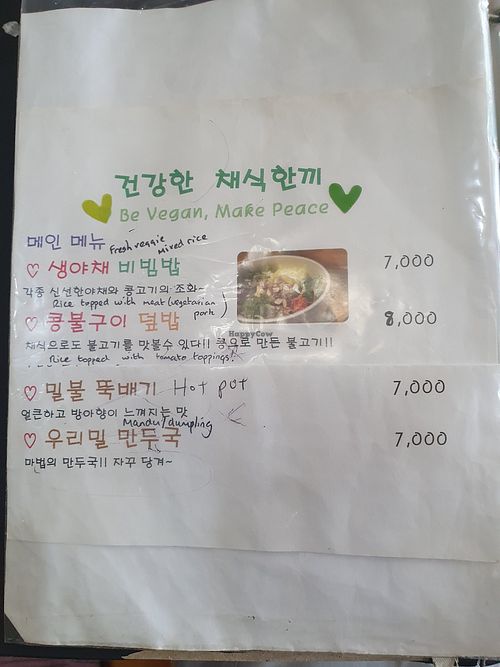 건강한 채식한끼
Be Vegan, Make Peace
메인 메뉴 Fresh veggie mixed rice
♡ 생야채 비빔밥 7,000
각종 신선한야채와 콩고기의 조화~
Rice topped with meat (vegetarian pork)
♡ 콩불구이 덮밥 8,000
채식으로도 불고기를 맛볼수 있다!! 콩으로 만든 불고기!!
Rice topped with tomato toppings!
♡ 밀불 뚝배기 Hot pot 7,000
얼큰하고 방아향이 느껴지는 맛
Mandu/dumpling
♡ 우리밀 만두국 7,000
마법의 만두국!! 자꾸 당겨~
HappyCow